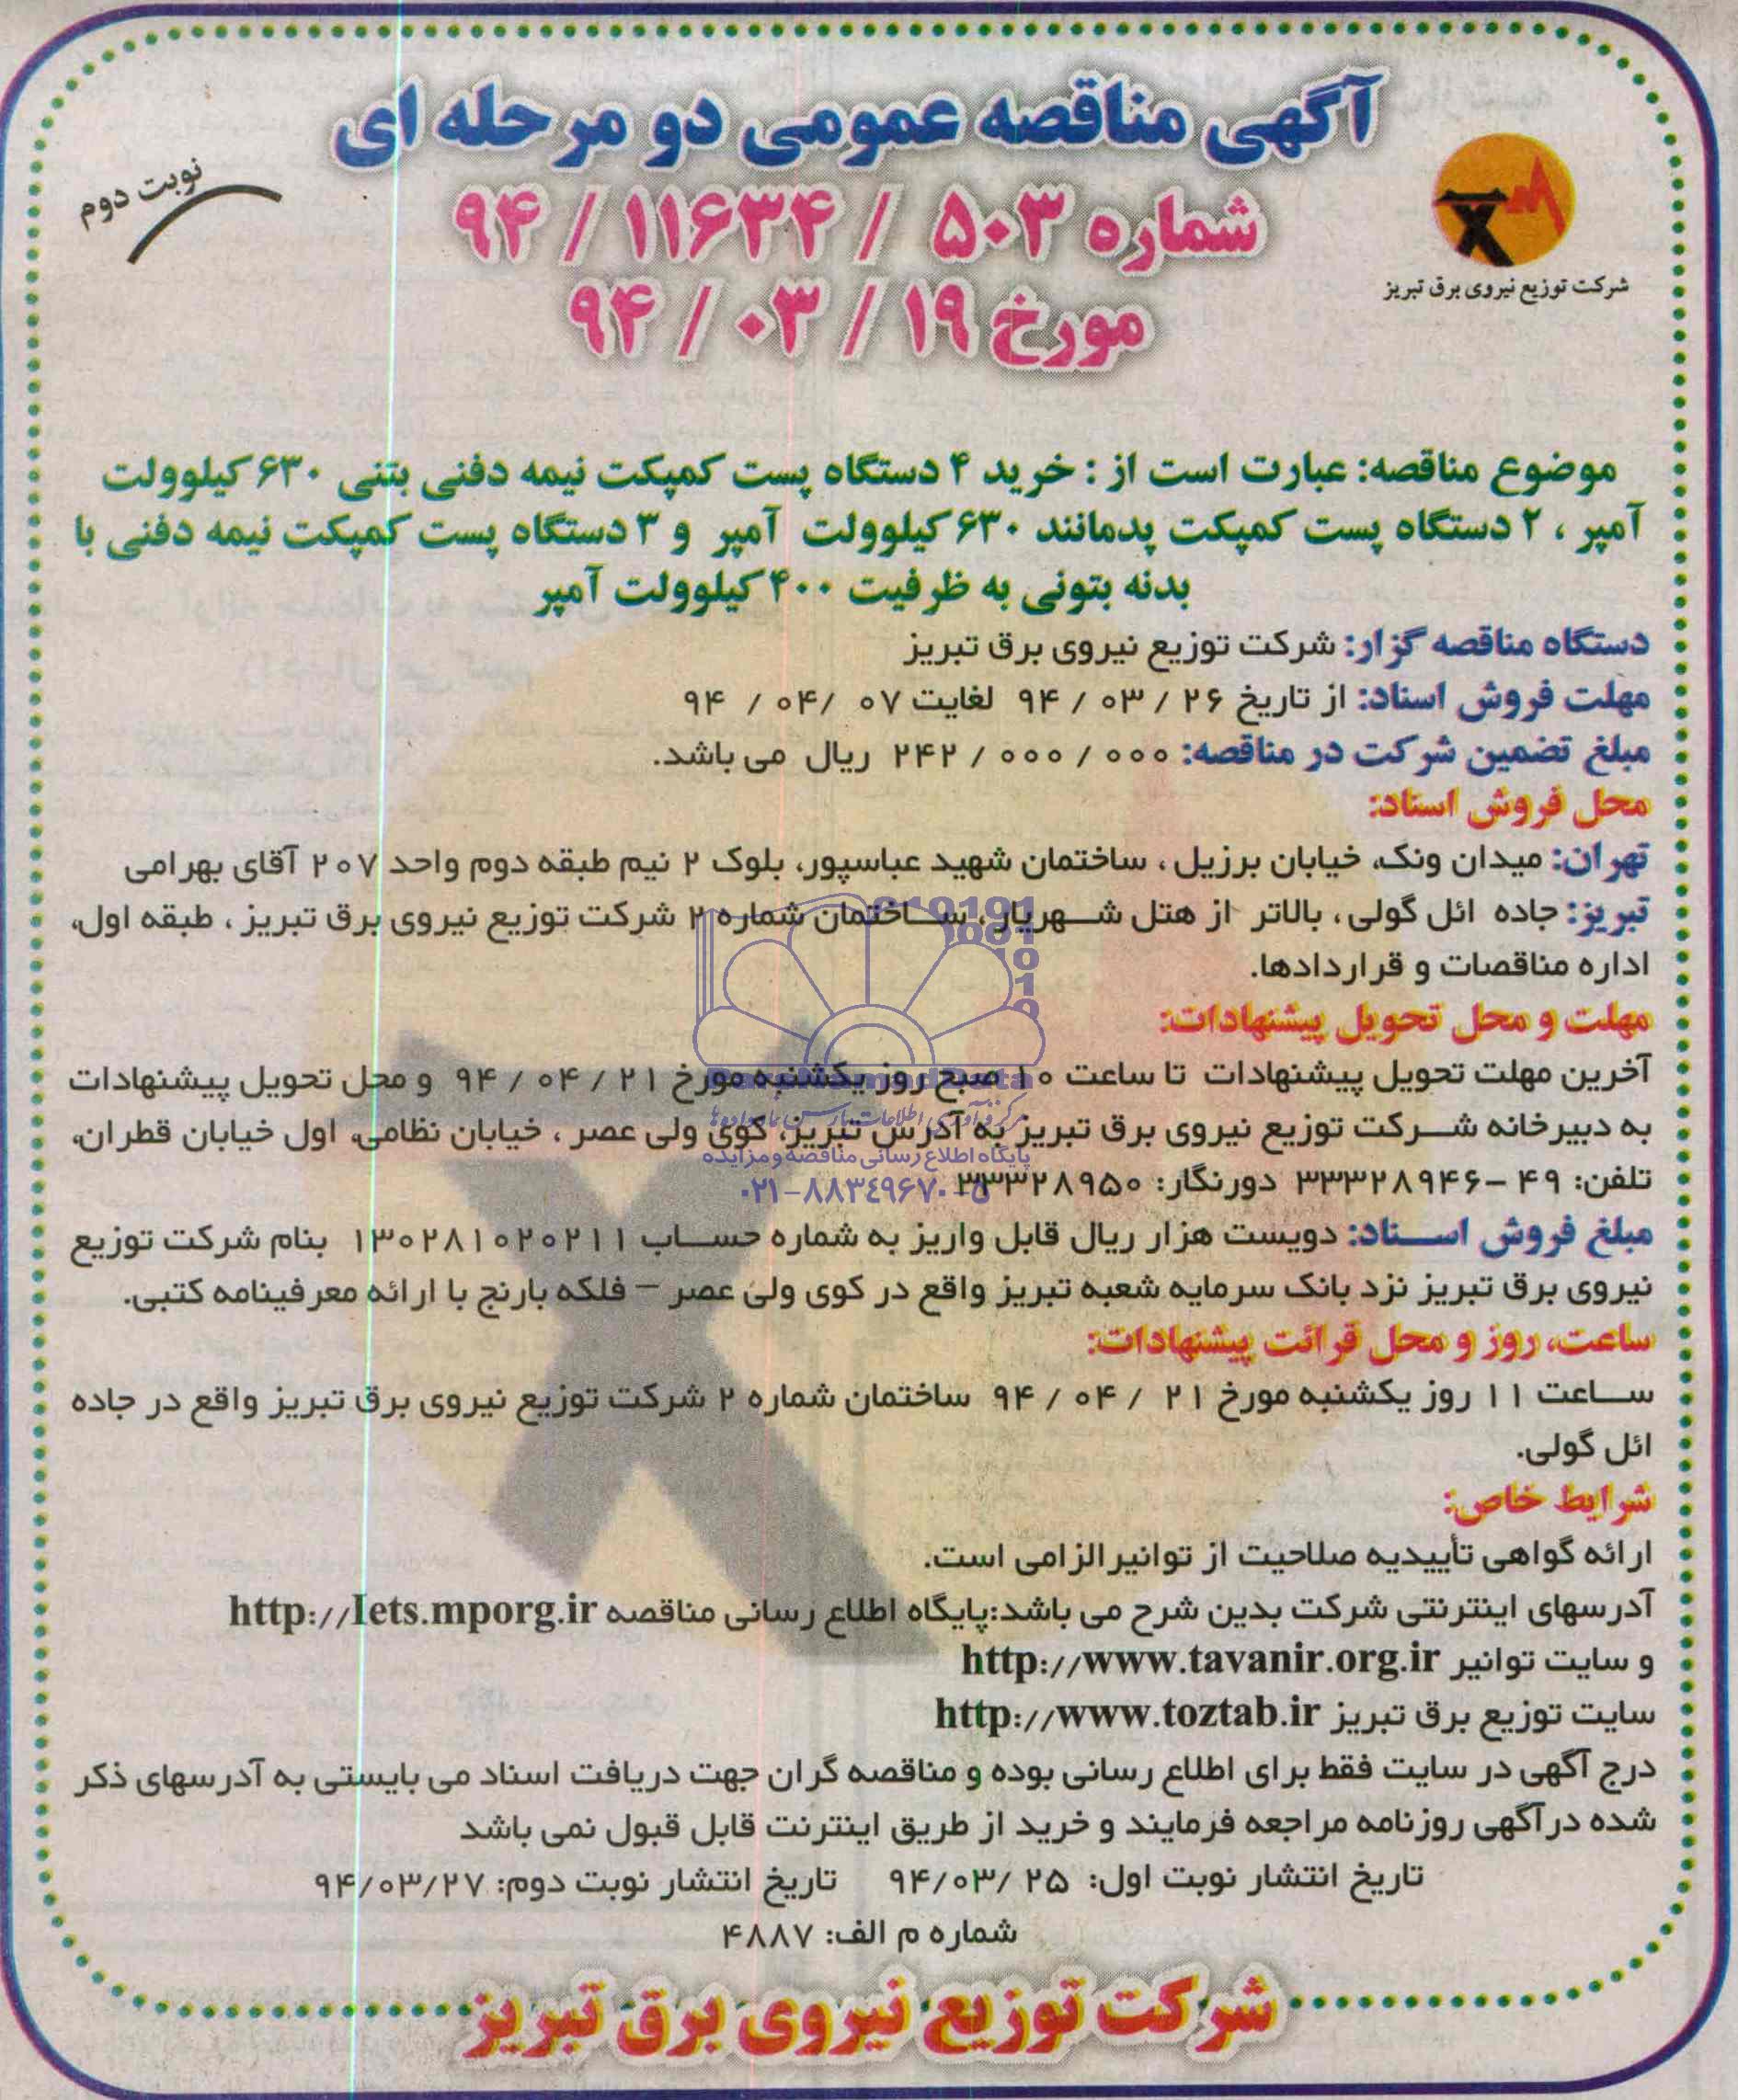 آگهی مناقصه عمومی دو مرحله ای
نوبت دوم
شماره ۵۰۳ / ۱۱۶۳۴ / ۹۴
مورخ ۱۹ / ۰۳ / ۹۴
شرکت توزیع نیروی برق تبریز
موضوع مناقصه: عبارت است از : خرید ۴ دستگاه پست کمپکت نیمه دفنی بتنی ۶۳۰ کیلوولت
آمپر ، ۲ دستگاه پست کمپکت پدمانند ۶۳۰ کیلوولت آمپر و ۳ دستگاه پست کمپکت نیمه دفنی با
بدنه بتونی به ظرفیت ۴۰۰ کیلوولت آمپر
دستگاه مناقصه گزار: شرکت توزیع نیروی برق تبریز
مهلت فروش اسناد: از تاریخ ۲۶ / ۰۳ / ۹۴ لغایت ۰۷ /۰۴ / ۹۴
مبلغ تضمین شرکت در مناقصه: ۰۰۰ / ۰۰۰ / ۲۴۲ ریال می باشد.
محل فروش اسناد:
تهران: میدان ونک، خیابان برزیل ، ساختمان شهید عباسپور، بلوک ۲ نیم طبقه دوم واحد ۲۰۷ آقای بهرامی
تبریز: جاده ائل گولی ، بالاتر از هتل شهریار، ساختمان شماره ۲ شرکت توزیع نیروی برق تبریز ، طبقه اول،
اداره مناقصات و قراردادها.
مهلت و محل تحویل پیشنهادات:
آخرین مهلت تحویل پیشنهادات تا ساعت ۱۰ صبح روز یکشنبه مورخ ۲۱ / ۰۴ / ۹۴ و محل تحویل پیشنهادات
به دبیرخانه شرکت توزیع نیروی برق تبریز به آدرس تبریز، کوی ولی عصر ، خیابان نظامی، اول خیابان قطران،
پایگاه اطلاع رسانی مناقصه و مزایده
تلفن: ۴۹ -۳۳۳۲۸۹۴۶ دورنگار: ۳۳۳۲۸۹۵۰
۰۲۱-۸۸۳۴۹۶۷۰-۵
مبلغ فروش اسناد: دویست هزار ریال قابل واریز به شماره حساب ۱۳۰۲۸۱۰۲۰۲۱۱ بنام شرکت توزیع
نیروی برق تبریز نزد بانک سرمایه شعبه تبریز واقع در کوی ولی عصر – فلکه بارنج با ارائه معرفینامه کتبی.
ساعت، روز و محل قرائت پیشنهادات:
ساعت ۱۱ روز یکشنبه مورخ ۲۱ / ۰۴ / ۹۴ ساختمان شماره ۲ شرکت توزیع نیروی برق تبریز واقع در جاده
ائل گولی.
شرایط خاص:
ارائه گواهی تأییدیه صلاحیت از توانیر الزامی است.
آدرسهای اینترنتی شرکت بدین شرح می باشد:پایگاه اطلاع رسانی مناقصه http://Iets.mporg.ir
و سایت توانیر http://www.tavanir.org.ir
سایت توزیع برق تبریز http://www.toztab.ir
درج آگهی در سایت فقط برای اطلاع رسانی بوده و مناقصه گران جهت دریافت اسناد می بایستی به آدرسهای ذکر
شده در آگهی روزنامه مراجعه فرمایند و خرید از طریق اینترنت قابل قبول نمی باشد
تاریخ انتشار نوبت اول: ۲۵ /۹۴/۰۳ تاریخ انتشار نوبت دوم: ۹۴/۰۳/۲۷
شماره م الف: ۴۸۸۷
شرکت توزیع نیروی برق تبریز